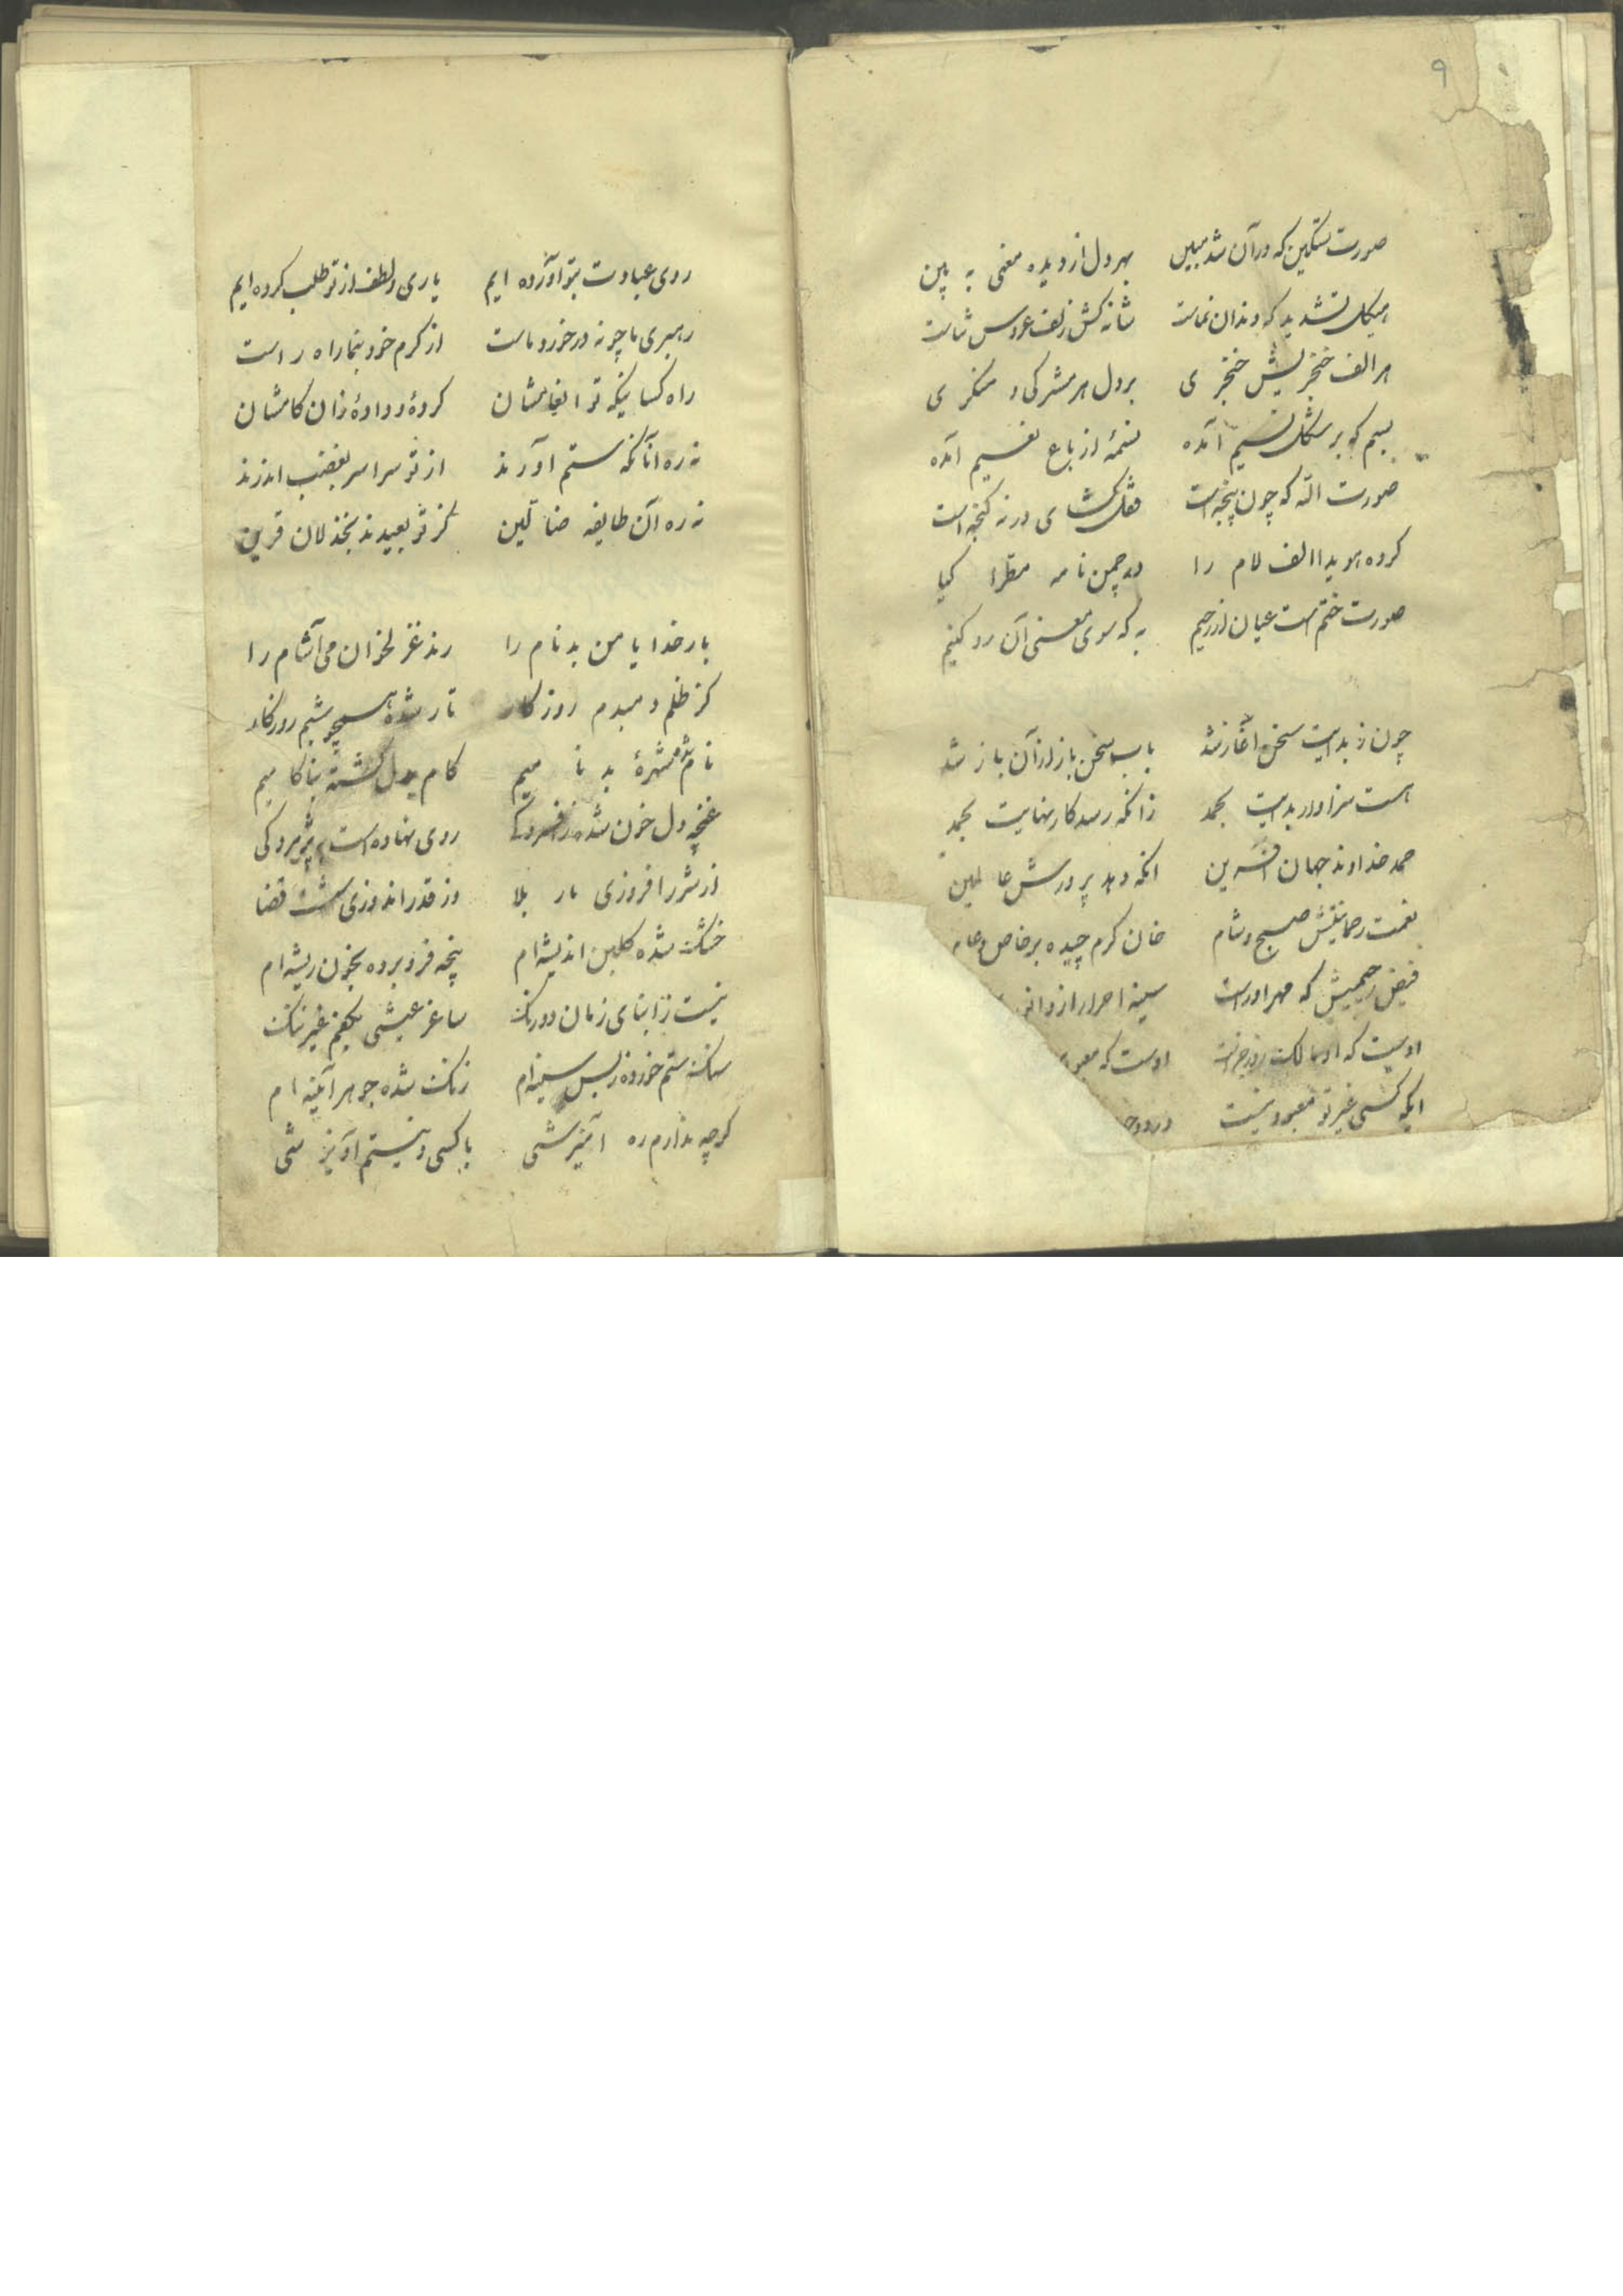 ۹
صورت تسکین که در آن شد مبین بهر دل از دیده معنی به بین
هیکل تشدید که دندان نماست شانه کش زلف عروس ثناست
هر الف خنجریش خنجر ی بر دل هر مشرکی و منکر ی
بسم که بر شکل نسیم آمده نسمهٔ از باغ نعیم آمده
صورت الله که چون پنجه است قفل کشای در نه کنجه است
کرده هویدا الف لام را در چمن نامه مطرا کیا
صورت ختم است عیان از رحیم به که سوی معنی آن رو کنیم
چون ز بدایت سخن آغاز شد باب سخن باز از آن باز شد
هست سزاوار بدایت بحمد زانکه رسد کار نهایت بحمد
حمد خداوند جهان آفرین انکه دهد پرورش عا لمین
نعمت رحمانیتش صبح و شام خان کرم چیده بر خاص و عام
فیض رحیمیش که مهر اور است سینه احرار از و انو
اوست که او مالک روز جزاست اوست که معبو
ایکه کسی غیر تو معبود نیست در دو جـ
روی عبادت بتو آورده ایم یاری و لطف از تو طلب کرده ایم
رهبری ما چو نه در خورد ماست از کرم خود بنما راه راست
راه کسانیکه تو انعامشان کردهٔ و دادهٔ زان کامشان
نه ره آنانکه ستم آورند از تو سراسر بغضب اندرند
نه ره آن طایفه ضا لّین کز تو بعیدند بخذلان قرین
بار خدایا من بدنام را رند غزلخوان می آشام را
کز ظلم و مبدم روزکار تار شده همچو شبم روزکار
نام شد شهرهٔ بد نا میم کام بدل کشته بناکا میم
غنچه دل خون شده ز افسردکی روی نهاده است به پژمردکی
از شرر افروزی نار بلا وز قدر اندوزی شست قضا
خشک شده کلبن اندیشه ام پنجه فرو برده بخون ریشه ام
نیست ز ابنای زمان دو رنک ساغر عیشی بکفم غیر ننک
سنک ستم خورده ز بس سینه ام زنک شده جوهر آئینه ام
کرچه ندارم ره آمیزشی با کسی و نیستم آویزشی